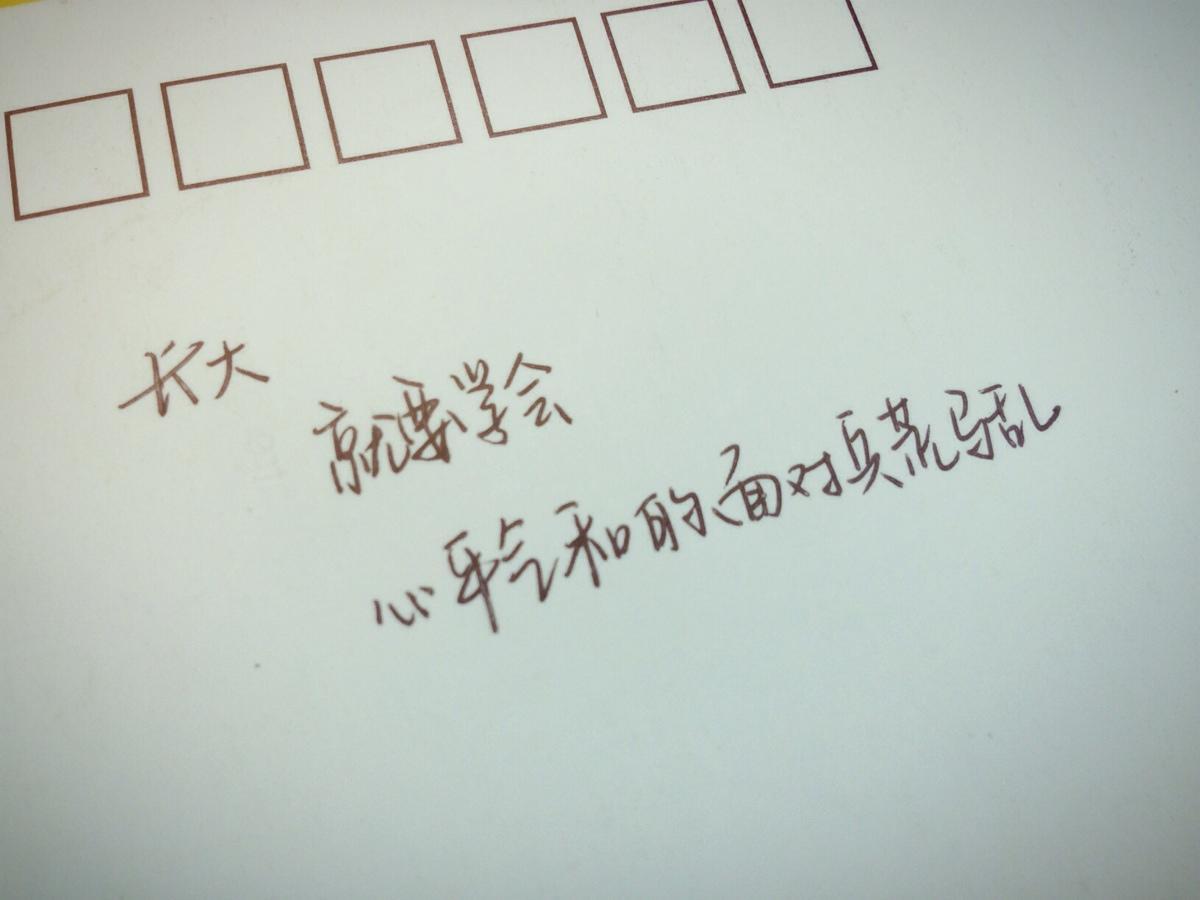 长大
就要学会
心平气和的面对兵荒马乱